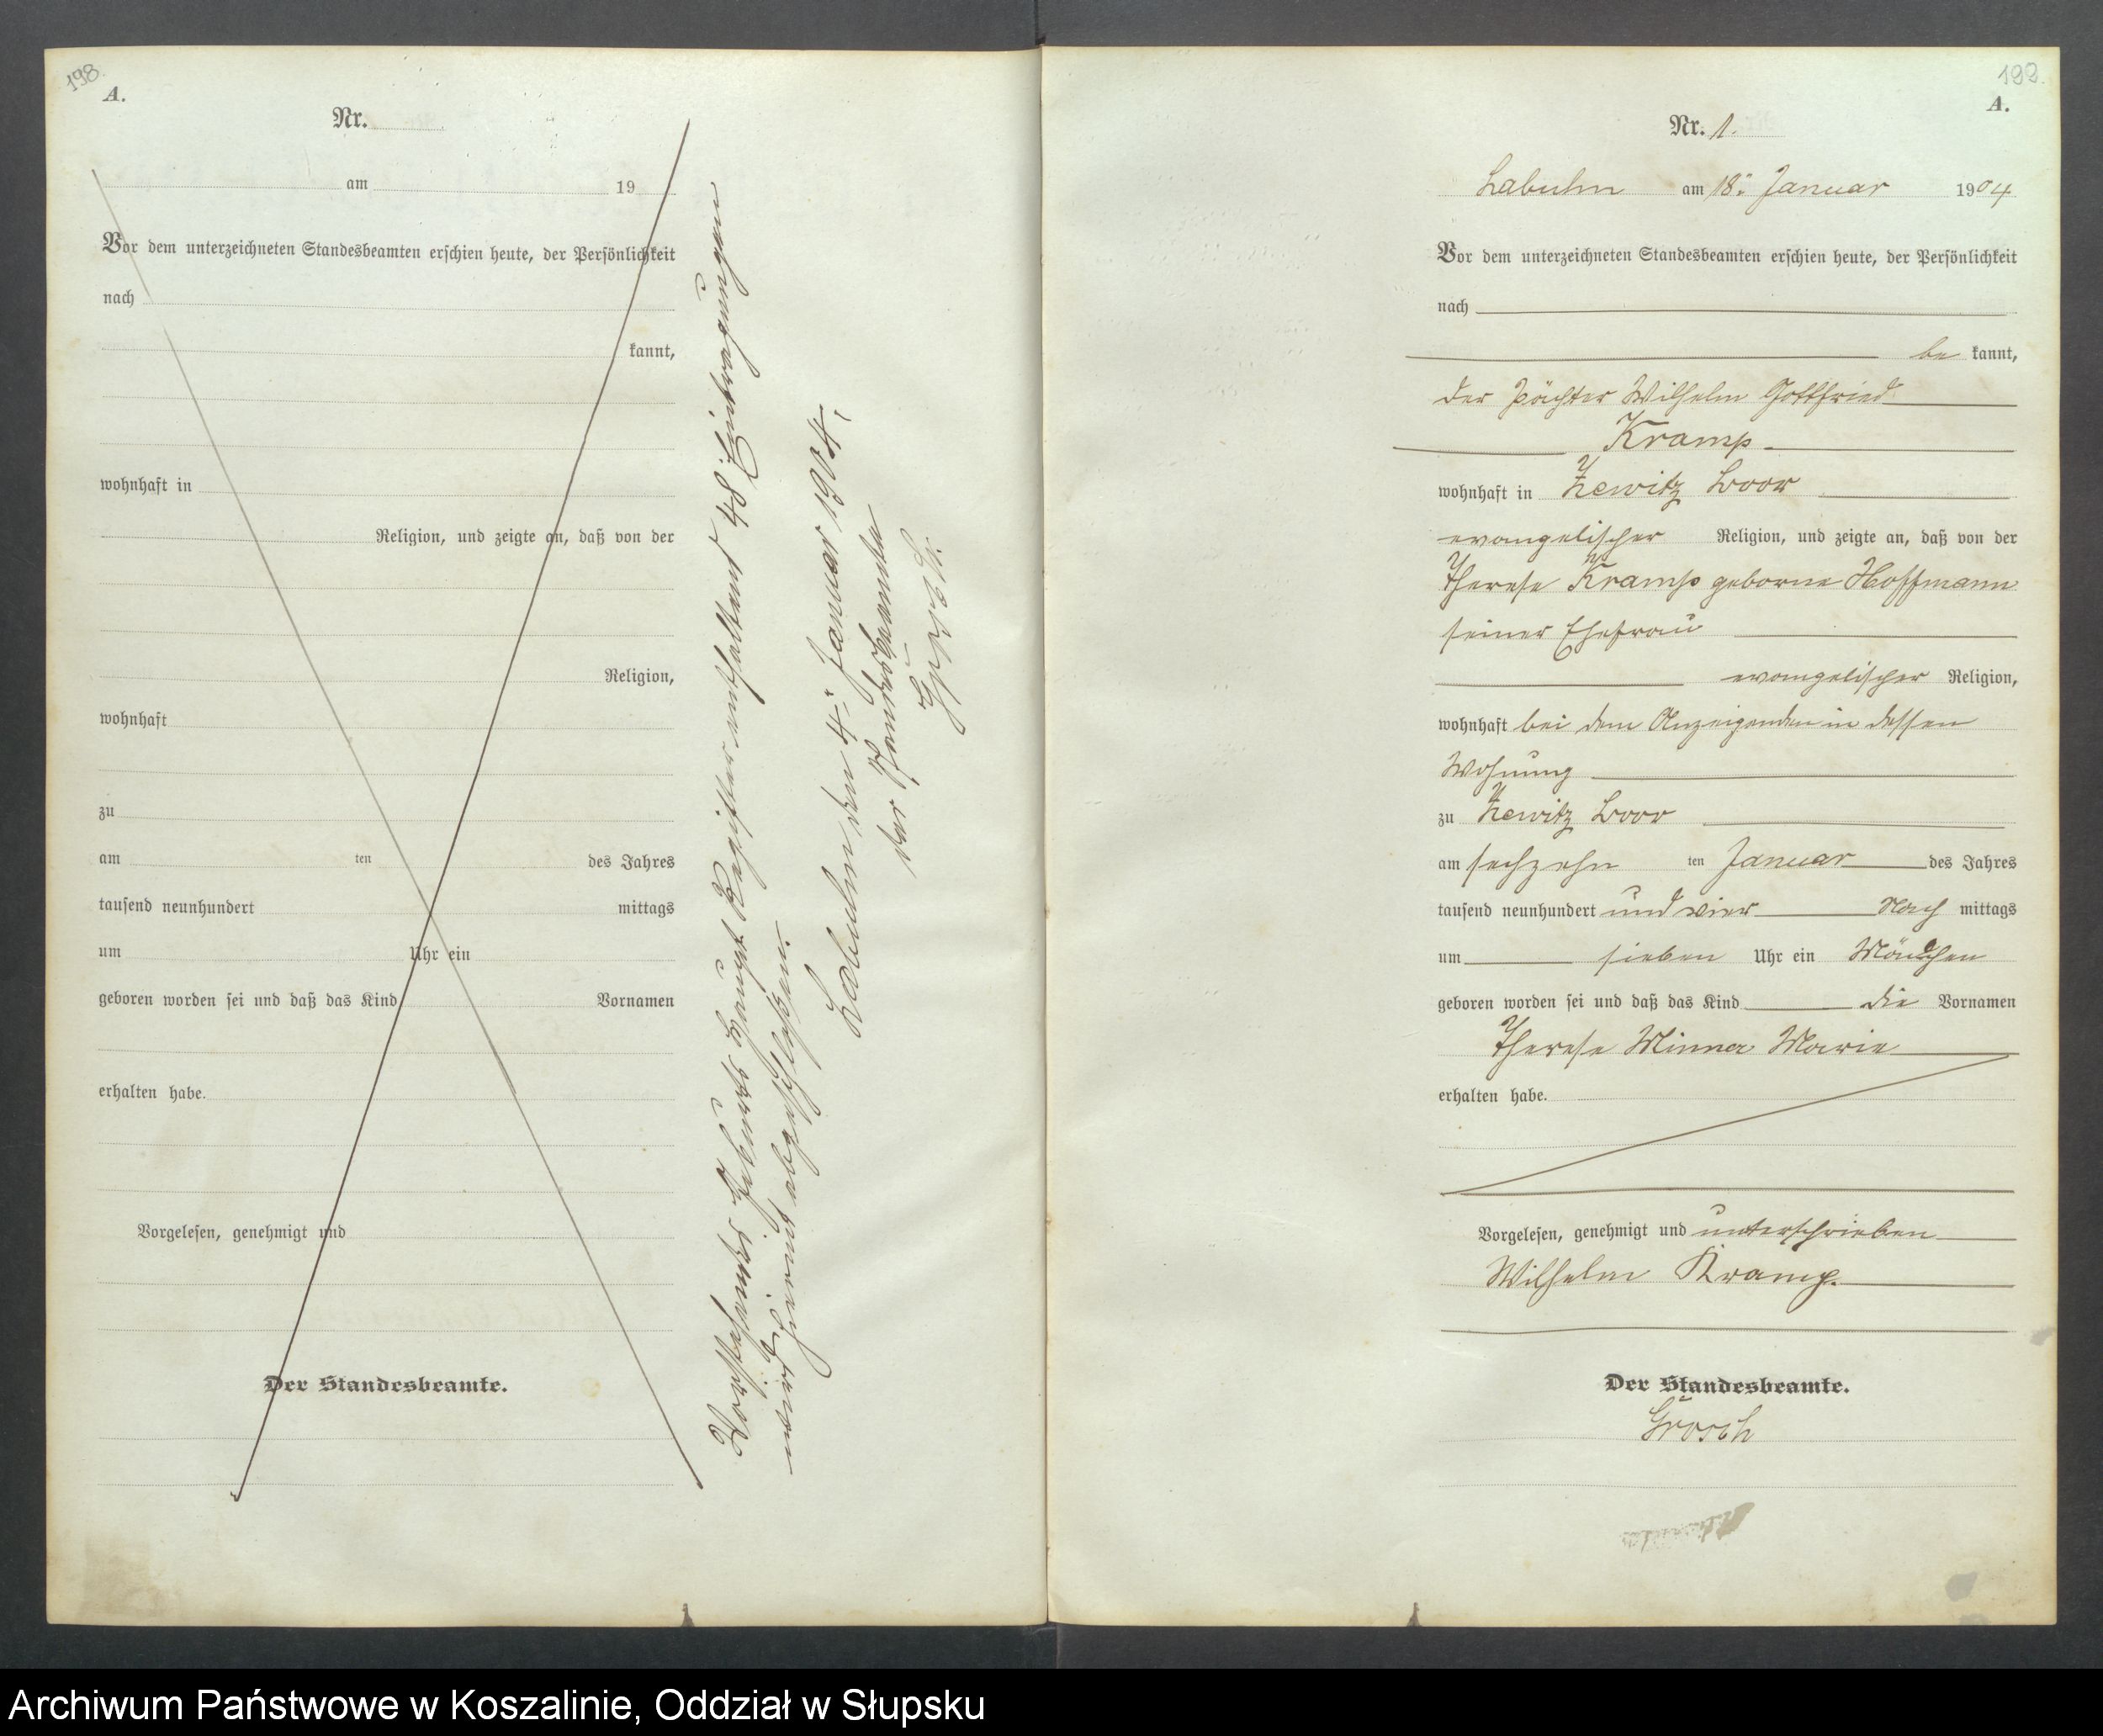 198.
A.
Nr.
am 19
Vor dem unterzeichneten Standesbeamten erschien heute, der Persönlichkeit
nach
kannt,
wohnhaft in
Religion, und zeigte an, daß von der
Religion,
wohnhaft
zu
am ten des Jahres
tausend neunhundert mittags
um Uhr ein
geboren worden sei und daß das Kind Vornamen
erhalten habe.
Vorgelesen, genehmigt und
Der Standesbeamte.
Vorstehendes Geburts Haupt Register enthaltend 48 Eintragungen
wird hiermit abgeschlossen.
Labuhn den 4. Januar 1904,
der Standesbeamte
Grosch.
199.
A.
Nr. 1.
Labuhn am 18. Januar 1904
Vor dem unterzeichneten Standesbeamten erschien heute, der Persönlichkeit
nach
be kannt,
der Pächter Wilhelm Gottfried
Kramp
wohnhaft in Zewitz
evangelischer Religion, und zeigte an, daß von der
Therese Kramp geborne Hoffmann
seiner Ehefrau
evangelischer Religion,
wohnhaft bei dem Anzeigenden in dessen
Wohnung
zu Zewitz
am sechzehn ten Januar des Jahres
tausend neunhundert und vier Nach mittags
um sieben Uhr ein Mädchen
geboren worden sei und daß das Kind die Vornamen
Therese Minna Marie
erhalten habe.
Vorgelesen, genehmigt und unterschrieben
Wilhelm Kramp.
Der Standesbeamte.
Grosch
Archiwum Państwowe w Koszalinie, Oddział w Słupsku